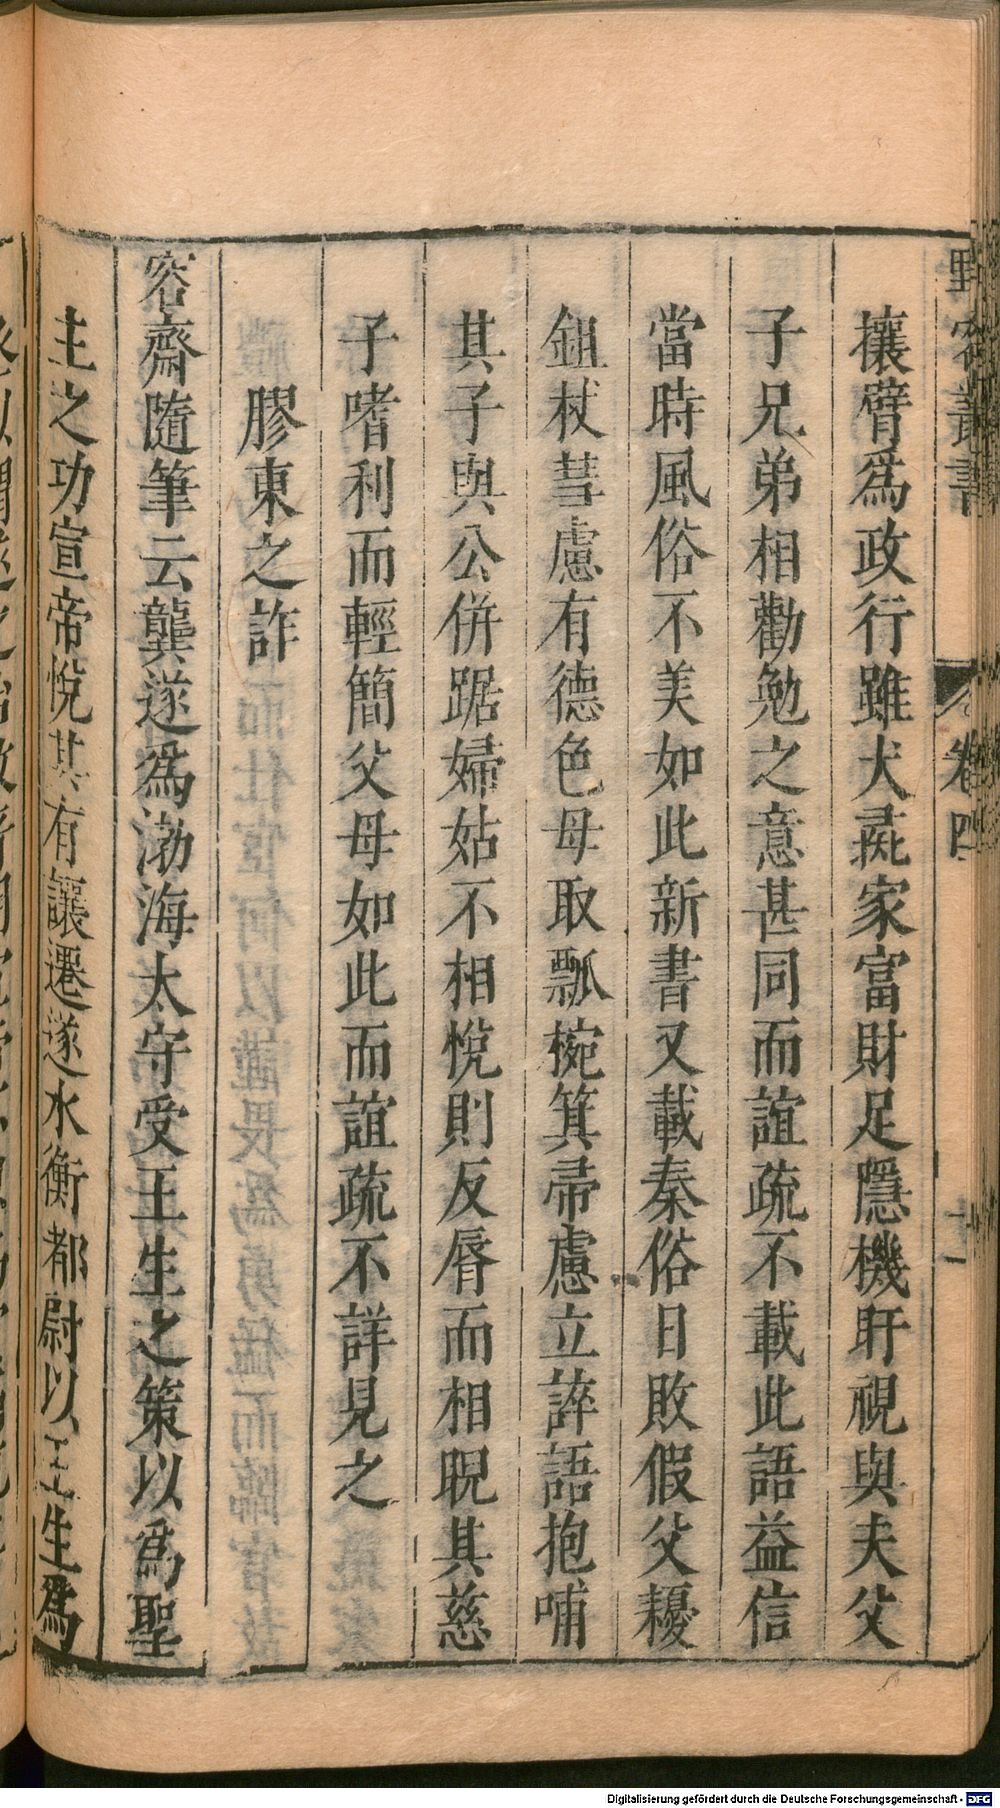 野客叢書
卷四
十一
攘臂爲政行雖犬彘家富財足隱機盱視與夫父
子兄弟相勸勉之意甚同而誼疏不載此語益信
當時風俗不美如此新書又載秦俗日敗假父耰
鉏杖彗慮有德色母取瓢椀箕帚慮立誶語抱哺
其子與公併踞婦姑不相悅則反脣而相睨其慈
子嗜利而輕簡父母如此而誼疏不詳見之
膠東之詐
容齋隨筆云龔遂爲渤海太守受王生之策以爲聖
主之功宣帝悅其有讓遷遂水衡都尉以王生爲
Digitalisierung gefördert durch die Deutsche Forschungsgemeinschaft - DFG